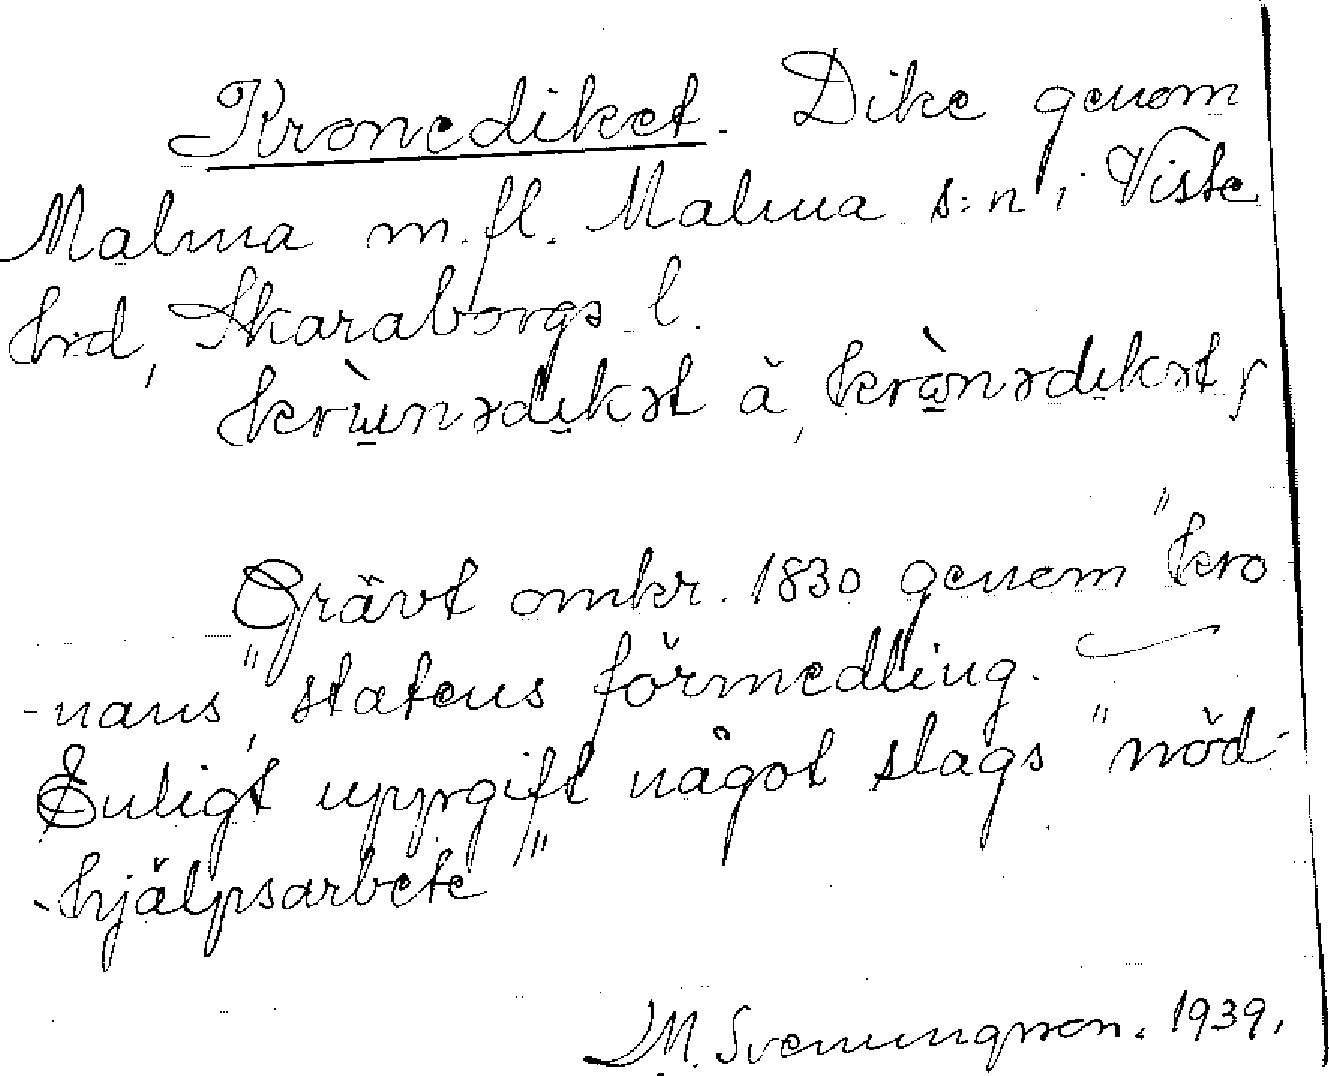 Kronediket. Dike genom
Malma m.fl. Malma s:n i Viste
hrd, Skaraborgs l.
krɯ̀nədikət ä, krɷ̀nədikət,

Grävt omkr. 1830 genom "kro
-nans," statens förmedling.
Enligt uppgift något slags "nöd-
-hjälpsarbete"
M. Svenungsson. 1939.